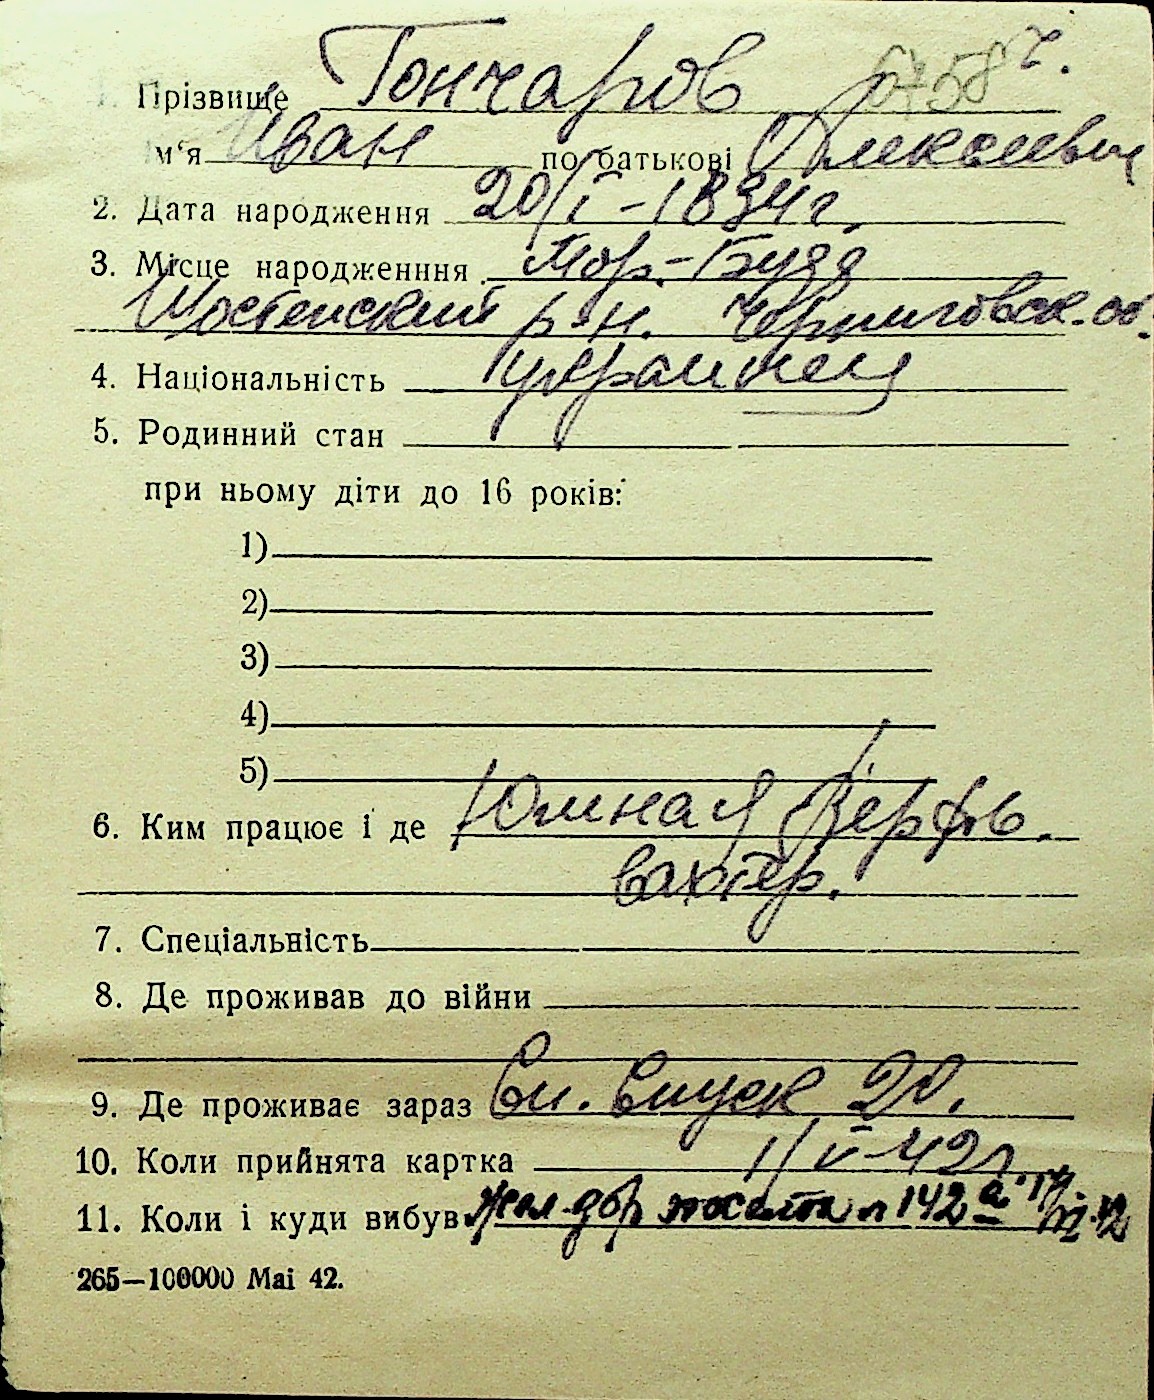 1. Прізвище Гончаров 6758 г.
Ім‘я Иван по батькові Алексеевич
2. Дата народження 20/I-1894 г.
3. Місце народженння Мор.-Буда
Шостенский р-н. Черниговск. об.
4. Національність украинец
5. Родинний стан
при ньому діти до 16 років:
1)
2)
3)
4)
5)
6. Ким працює і де Южная Верфь.
вахтер.
7. Спеціальність
8. Де проживав до війни
9. Де проживає зараз Сп. Спуск 20.
10. Коли прийнята картка 1/V-42 г.
11. Коли і куди вибув Жел-дор поселок 142 а
265—100000 Маі 42.